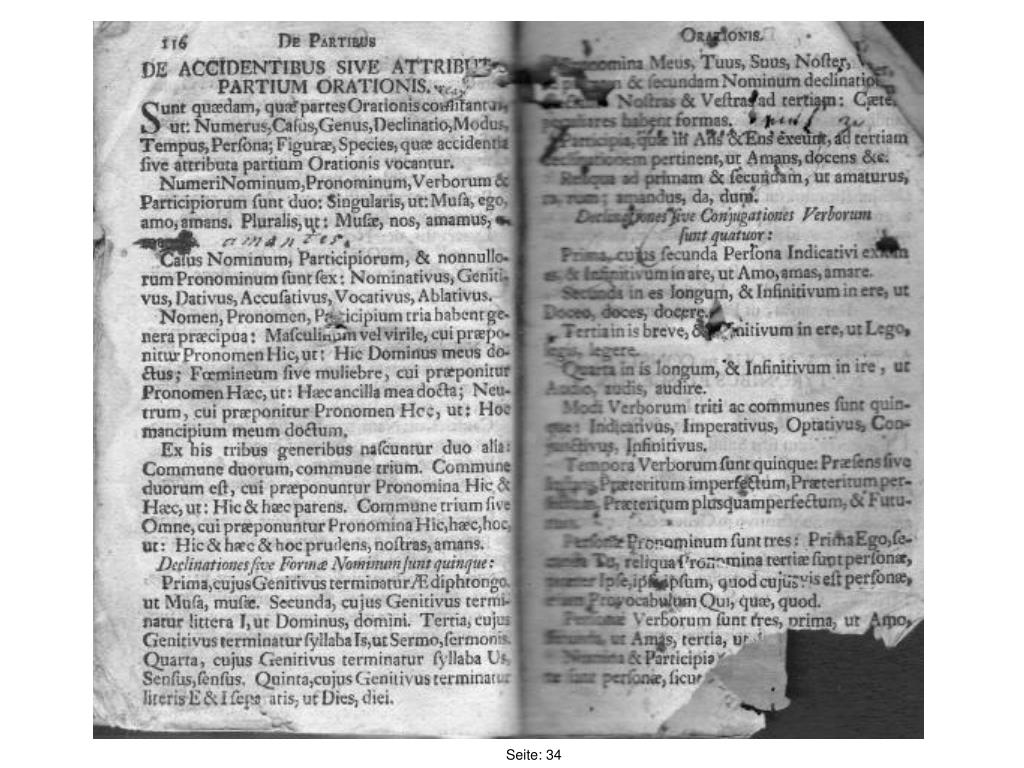 116 DE PARTIBUS
DE ACCIDENTIBUS SIVE ATTRIBU
PARTIUM ORATIONIS.
Sunt quædam, quæ partes Orationis comitantur,
ut: Numerus, Caſus, Genus, Declinatio, Modus,
Tempus, Perſona; Figuræ, Species, quæ accidentia
ſive attributa partium Orationis vocantur.
Numeri Nominum, Pronominum, Verborum &
Participiorum ſunt duo: Singularis, ut: Muſa, ego,
amo, amans. Pluralis, ut: Muſæ, nos, amamus,
amantes.
Caſus Nominum, Participiorum, & nonnullo-
rum Pronominum ſunt ſex: Nominativus, Geniti-
vus, Dativus, Accuſativus, Vocativus, Ablativus.
Nomen, Pronomen, Participium tria habent ge-
nera præcipua: Maſculinum vel virile, cui præpo-
nitur Pronomen Hic, ut: Hic Dominus meus do-
ctus; Fœmineum ſive muliebre, cui præponitur
Pronomen Hæc, ut: Hæc ancilla mea docta; Neu-
trum, cui præponitur Pronomen Hoc, ut: Hoc
mancipium meum doctum.
Ex his tribus generibus naſcuntur duo alia:
Commune duorum, commune trium. Commune
duorum eſt, cui præponuntur Pronomina Hic &
Hæc, ut: Hic & hæc parens. Commune trium ſive
Omne, cui præponuntur Pronomina Hic, hæc, hoc,
ut: Hic & hæc & hoc prudens, noſtras, amans.
Declinationes ſive Formæ Nominum ſunt quinque:
Prima, cujus Genitivus terminatur Æ diphtongo,
ut Muſa, muſæ. Secunda, cujus Genitivus termi-
natur littera I, ut Dominus, domini. Tertia, cujus
Genitivus terminatur ſyllaba Is, ut Sermo, ſermonis.
Quarta, cujus Genitivus terminatur ſyllaba Us,
Senſus, ſenſus. Quinta, cujus Genitivus terminatur
literis E & I ſepa atis, ut Dies, diei.
ORATIONIS.
Meus, Tuus, Suus, Noſter,
& ſecundam Nominum declinatio
Noſtras & Veſtras ad tertiam: Cæte
peculiares habent formas.
Participia, quæ in Ans & Ens exeunt, ad tertiam
declinationem pertinent, ut Amans, docens &c.
Reliqua ad primam & ſecundam, ut amaturus,
ra, rum; amandus, da, dum.
Declinationes ſive Conjugationes Verborum
ſunt quatuor:
Prima, cujus ſecunda Perſona Indicativi exit in
as & Infinitivum in are, ut Amo, amas, amare.
Secunda in es longum, & Infinitivum in ere, ut
Doceo, doces, docere.
Tertia in is breve, & Infinitivum in ere, ut Lego,
legis, legere.
Quarta in is longum, & Infinitivum in ire, ut
Audio, audis, audire.
Modi Verborum triti ac communes ſunt quin-
que: Indicativus, Imperativus, Optativus, Con-
junctivus, Infinitivus.
Tempora Verborum ſunt quinque: Præſens ſive
Præteritum imperfectum, Præteritum per-
fectum, Præteritum plusquamperfectum, & Futu-
rum.
Perſonæ Pronominum ſunt tres: Prima Ego, ſe-
cunda Tu, reliqua Pronomina tertiæ ſunt perſonæ,
præter Ipſe, ipſa, ipſum, quod cujusvis eſt perſonæ,
etiam Provocabulum Qui, quæ, quod.
Perſonæ Verborum ſunt tres, prima, ut Amo,
ſecunda, ut Amas, tertia, ut
Nomina & Participia
ſunt perſonæ, ſicut
Seite: 34